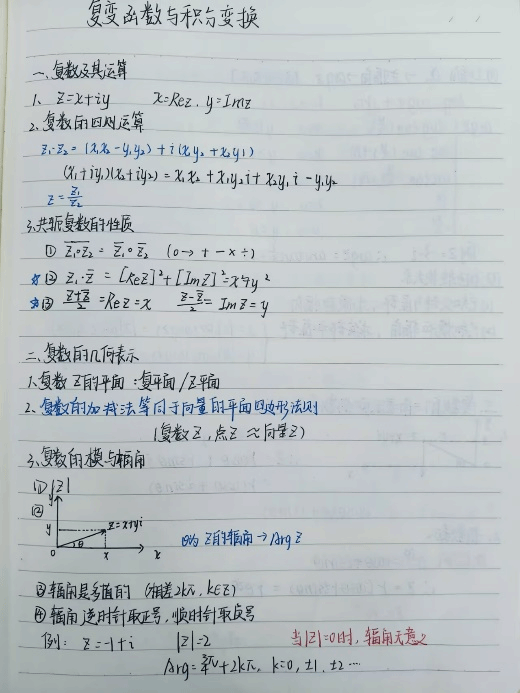 复变函数与积分变换
一、复数及其运算
1、 z=x+iy x=Rez, y=Imz
2、复数的四则运算
z₁·z₂=(x₁x₂-y₁y₂)+i(x₁y₂+x₂y₁)
(x₁+iy₁)(x₂+iy₂)=x₁x₂+x₁y₂i+x₂y₁i-y₁y₂
z=z₁/z₂
3、共轭复数的性质
① \overline{z₁∘z₂}=z̄₁∘z̄₂ (∘→+-×÷)
☆② z·z̄=[Rez]²+[Imz]²=x²+y²
☆③ (z+z̄)/2=Rez=x (z-z̄)/2=Imz=y
二、复数的几何表示
1、复数z的平面:复平面/z平面
2、复数的加减法等同于向量的平面四边形法则
(复数z,点z≈向量z)
3、复数的模与辐角
①|z|
②
y
y z=x+yi
θ
0 x x
θ为z的辐角→Arg z
③辐角是多值的 (相差2kπ, k∈Z)
④辐角逆时针取正号,顺时针取负号
例: z=-1+i |z|=2 当|z|=0时,辐角无意义
Arg=¾π+2kπ, k=0, ±1, ±2…